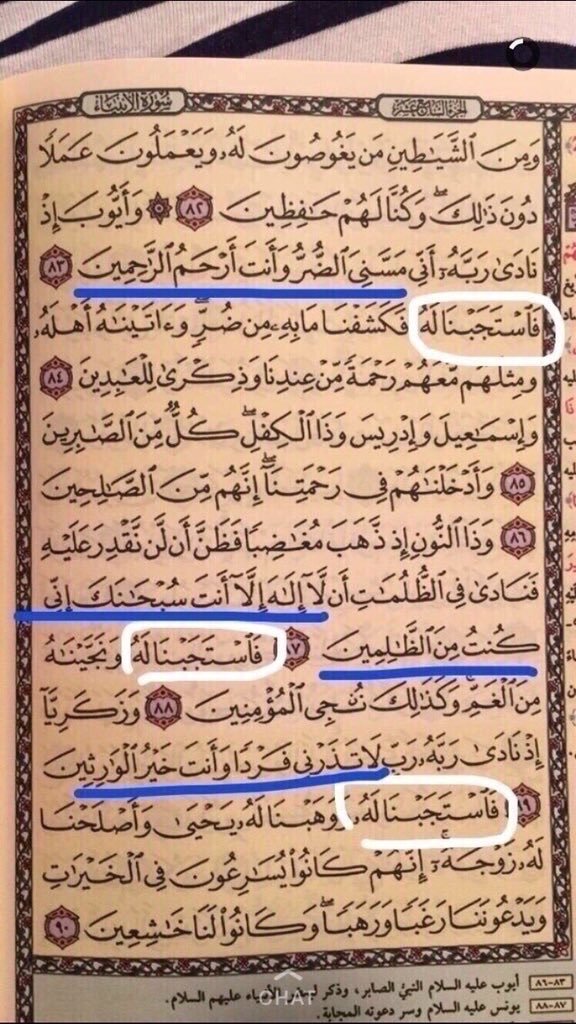 الجزء السابع عشر
سورة الأنبياء
وَمِنَ ٱلشَّيَٰطِينِ مَن يَغُوصُونَ لَهُۥ وَيَعْمَلُونَ عَمَلًا
دُونَ ذَٰلِكَ ۖ وَكُنَّا لَهُمْ حَٰفِظِينَ ٨٢ ۞ وَأَيُّوبَ إِذْ
نَادَىٰ رَبَّهُۥٓ أَنِّى مَسَّنِىَ ٱلضُّرُّ وَأَنتَ أَرْحَمُ ٱلرَّٰحِمِينَ ٨٣
فَٱسْتَجَبْنَا لَهُۥ فَكَشَفْنَا مَا بِهِۦ مِن ضُرٍّ ۖ وَءَاتَيْنَٰهُ أَهْلَهُۥ
وَمِثْلَهُم مَّعَهُمْ رَحْمَةً مِّنْ عِندِنَا وَذِكْرَىٰ لِلْعَٰبِدِينَ ٨٤
وَإِسْمَٰعِيلَ وَإِدْرِيسَ وَذَا ٱلْكِفْلِ ۖ كُلٌّ مِّنَ ٱلصَّٰبِرِينَ
٨٥ وَأَدْخَلْنَٰهُمْ فِى رَحْمَتِنَآ ۖ إِنَّهُم مِّنَ ٱلصَّٰلِحِينَ
٨٦ وَذَا ٱلنُّونِ إِذ ذَّهَبَ مُغَٰضِبًا فَظَنَّ أَن لَّن نَّقْدِرَ عَلَيْهِ
فَنَادَىٰ فِى ٱلظُّلُمَٰتِ أَن لَّآ إِلَٰهَ إِلَّآ أَنتَ سُبْحَٰنَكَ إِنِّى
كُنتُ مِنَ ٱلظَّٰلِمِينَ ٨٧ فَٱسْتَجَبْنَا لَهُۥ وَنَجَّيْنَٰهُ
مِنَ ٱلْغَمِّ ۚ وَكَذَٰلِكَ نُۨجِى ٱلْمُؤْمِنِينَ ٨٨ وَزَكَرِيَّآ
إِذْ نَادَىٰ رَبَّهُۥ رَبِّ لَا تَذَرْنِى فَرْدًا وَأَنتَ خَيْرُ ٱلْوَٰرِثِينَ
٨٩ فَٱسْتَجَبْنَا لَهُۥ وَوَهَبْنَا لَهُۥ يَحْيَىٰ وَأَصْلَحْنَا
لَهُۥ زَوْجَهُۥٓ ۚ إِنَّهُمْ كَانُوا۟ يُسَٰرِعُونَ فِى ٱلْخَيْرَٰتِ
وَيَدْعُونَنَا رَغَبًا وَرَهَبًا ۖ وَكَانُوا۟ لَنَا خَٰشِعِينَ ٩٠
٨٣-٨٦ أيوب عليه السلام النبيُّ الصابر، وذكر لبعض الأنبياء عليهم السلام.
٨٧-٨٨ يونس عليه السلام وسر دعوته المجابة.
CHAT